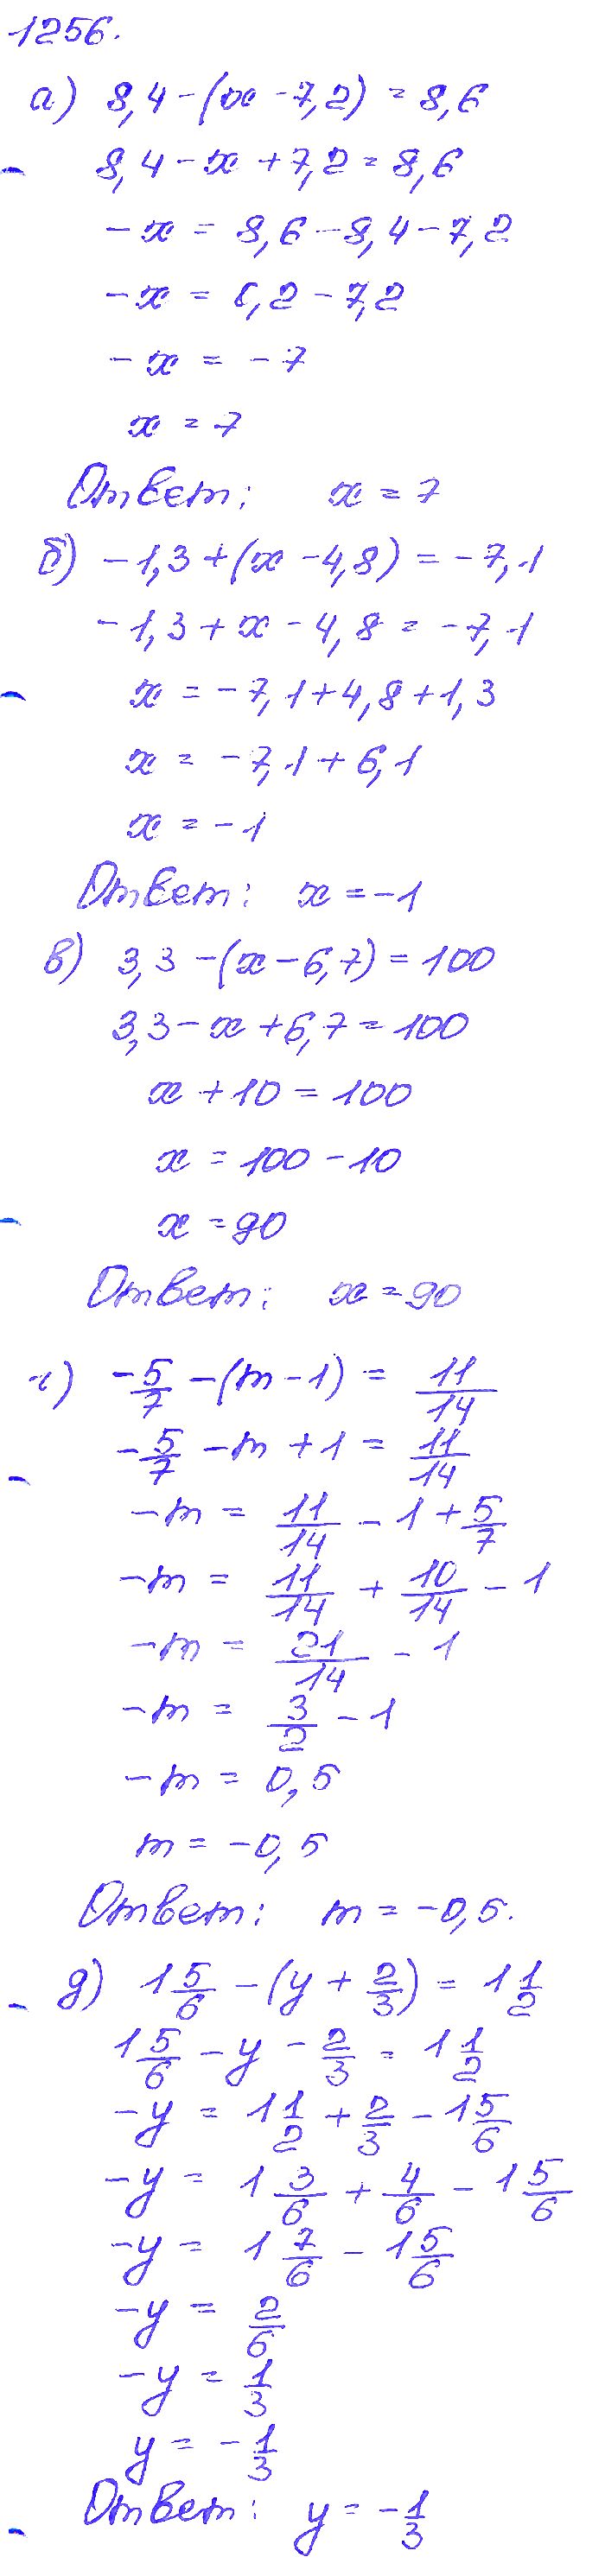 1256.
а) 8,4 - (x - 7,2) = 8,6
8,4 - x + 7,2 = 8,6
- x = 8,6 - 8,4 - 7,2
- x = 0,2 - 7,2
- x = - 7
x = 7
Ответ: x = 7
б) - 1,3 + (x - 4,8) = - 7,1
- 1,3 + x - 4,8 = - 7,1
x = - 7,1 + 4,8 + 1,3
x = - 7,1 + 6,1
x = - 1
Ответ: x = - 1
в) 3,3 - (x - 6,7) = 100
3,3 - x + 6,7 = 100
x + 10 = 100
x = 100 - 10
x = 90
Ответ: x = 90
г) - 5/7 - (m - 1) = 11/14
- 5/7 - m + 1 = 11/14
- m = 11/14 - 1 + 5/7
- m = 11/14 + 10/14 - 1
- m = 21/14 - 1
- m = 3/2 - 1
- m = 0,5
m = - 0,5
Ответ: m = - 0,5.
д) 1 5/6 - (y + 2/3) = 1 1/2
1 5/6 - y - 2/3 = 1 1/2
- y = 1 1/2 + 2/3 - 1 5/6
- y = 1 3/6 + 4/6 - 1 5/6
- y = 1 7/6 - 1 5/6
- y = 2/6
- y = 1/3
y = - 1/3
Ответ: y = - 1/3